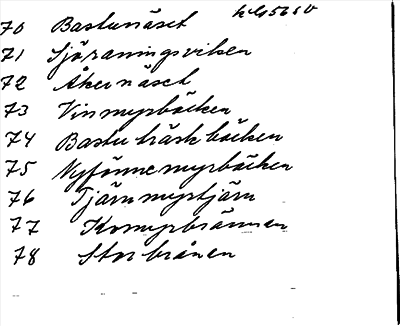 70 Bastunäset
71 Sjöraningsviken
72 Åkernäset
73 Vinmyrbäcken
74 Bastuträsk bäcken
75 Nyfönnemyrbäcken
76 Tjärnmyrtjärn
77 Kornyrbrännan
78 Storbrånen